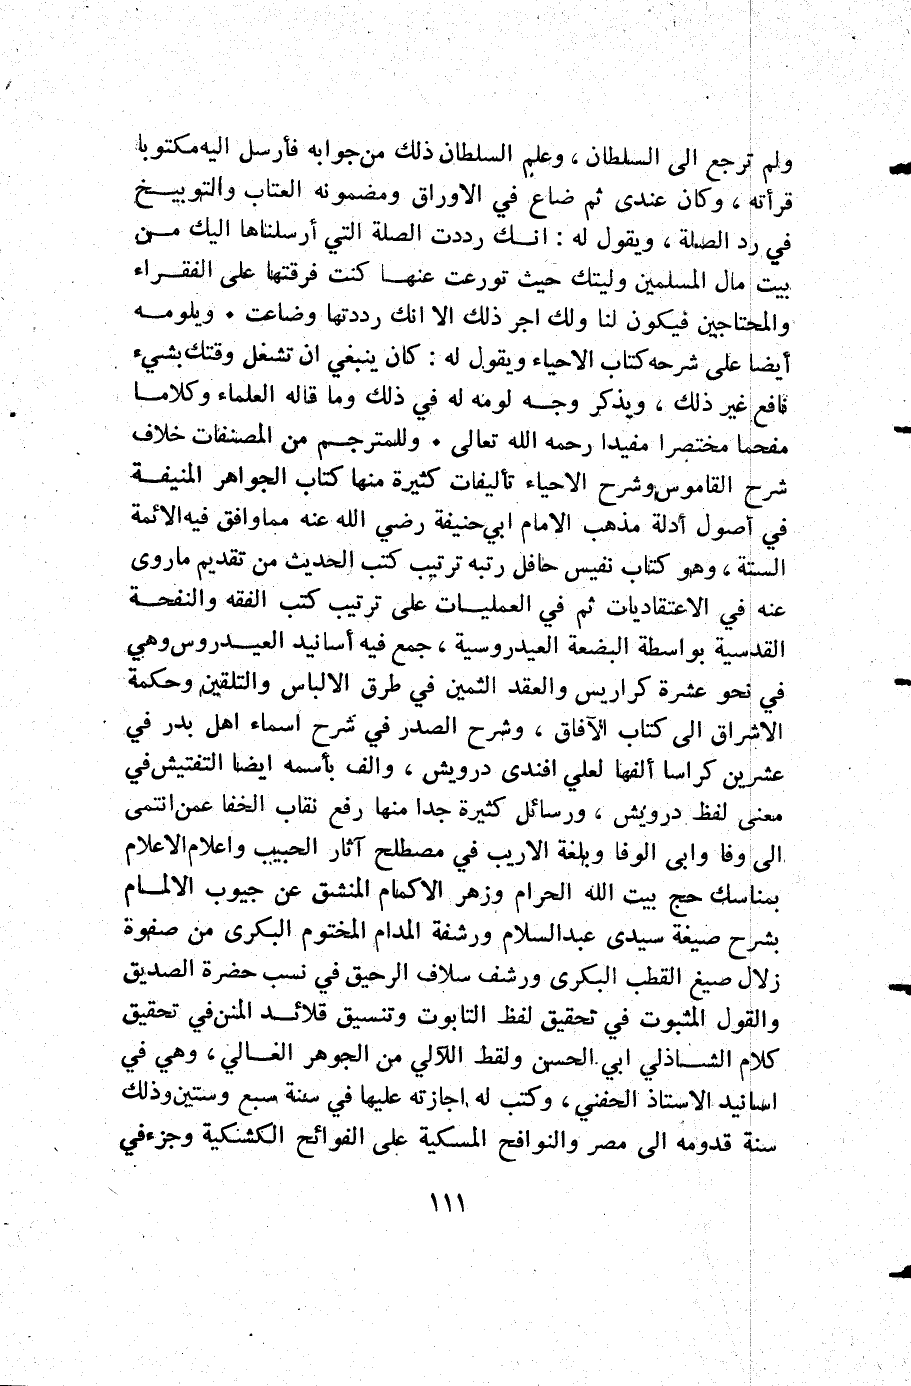 ولم ترجع الى السلطان ، وعلم السلطان ذلك من جوابه فأرسل اليه مكتوبا
قرأته ، وكان عندى ثم ضاع في الاوراق ومضمونه العتاب والتوبيخ
في رد الصلة ، ويقول له : انك رددت الصلة التي أرسلناها اليك من
بيت مال المسلمين وليتك حيث تورعت عنها كنت فرقتها على الفقراء
والمحتاجين فيكون لنا ولك اجر ذلك الا انك رددتها وضاعت ٠ ويلومه
أيضا على شرحه كتاب الاحياء ويقول له : كان ينبغي ان تشغل وقتك بشيء
نافع غير ذلك ، ويذكر وجه لومه له في ذلك وما قاله العلماء وكلاما
مفحما مختصرا مفيدا رحمه الله تعالى ٠ وللمترجم من المصنفات خلاف
شرح القاموس وشرح الاحياء تأليفات كثيرة منها كتاب الجواهر المنيفة
في أصول أدلة مذهب الامام ابي حنيفة رضي الله عنه مما وافق فيه الائمة
الستة ، وهو كتاب نفيس حافل رتبه ترتيب كتب الحديث من تقديم ماروى
عنه في الاعتقاديات ثم في العمليات على ترتيب كتب الفقه والنفحة
القدسية بواسطة البضعة العيدروسية ، جمع فيه أسانيد العيدروس وهي
في نحو عشرة كراريس والعقد الثمين في طرق الالباس والتلقين وحكمة
الاشراق الى كتاب الآفاق ، وشرح الصدر في شرح اسماء اهل بدر في
عشرين كراسا ألفها لعلي افندى درويش ، والف بأسمه ايضا التفتيش في
معنى لفظ درويش ، ورسائل كثيرة جدا منها رفع نقاب الخفا عمن انتمى
الى وفا وابى الوفا وبلغة الاريب في مصطلح آثار الحبيب واعلام الاعلام
بمناسك حج بيت الله الحرام وزهر الاكمام المنشق عن جيوب الالمام
بشرح صيغة سيدى عبدالسلام ورشفة المدام المختوم البكرى من صفوة
زلال صيغ القطب البكرى ورشف سلاف الرحيق في نسب حضرة الصديق
والقول المثبوت في تحقيق لفظ التابوت وتنسيق قلائد المنن في تحقيق
كلام الشاذلي ابي الحسن ولقط اللآلي من الجوهر الغالي ، وهي في
اسانيد الاستاذ الحفني ، وكتب له اجازته عليها في سنة سبع وستين وذلك
سنة قدومه الى مصر والنوافح المسكية على الفوائح الكشنكية وجزء في
١١١